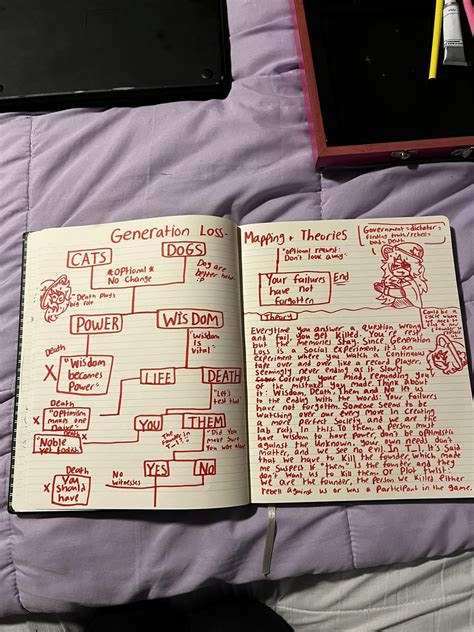 Generation Loss-
CATS
DOGS
*optional*
No Change
Dog are
better
:P
Death plays
big role
POWER
WISDOM
Death
X
"Wisdom
becomes
Power"
"Wisdom
is
vital"
LIFE
DEATH
Death
X
"Optimism
makes one
"Let's
test that"
YOU
THEM
"Noble
yet foolish
"Did you
make sure
you were alone
Death
X
YES
No
No
witnesses
You
should
have
Mapping + Theories
*Optional reward:
Don't look away*
Your failures
have not
forgotten
End
Government = dictator =
finding truth/rebel=
bad = Death
Theory
Could be a
cycle
Everytime you answer a question wrong
and fail, you get killed. You're reset
but the memories stay. Since Generation
Loss is a Social experiment, it's an
experiment where you watch a continual
take over and over like a record player.
Seemingly never ending as it slowly
corrupts your mind, reminding you
of the mistakes you made. Think about
it: Wisdom, Death, Them and No let us
to the ending with the words: Your failures
have not forgotten. Someone seems to be
watching over our every move in creating
a more perfect society and we are the
lab rats in this. To them a person must
have wisdom to have power, don't be optimistic
against the Unknown, your own needs don't
matter, and we see no evil. In T_1, it's said
that we have to kill the founder, which made
me suspect is "them" is the founder and they
don't want us to kill them. Or plot twist:
we are the founder, the person we killed either
rebell against us or was a participant in the game.